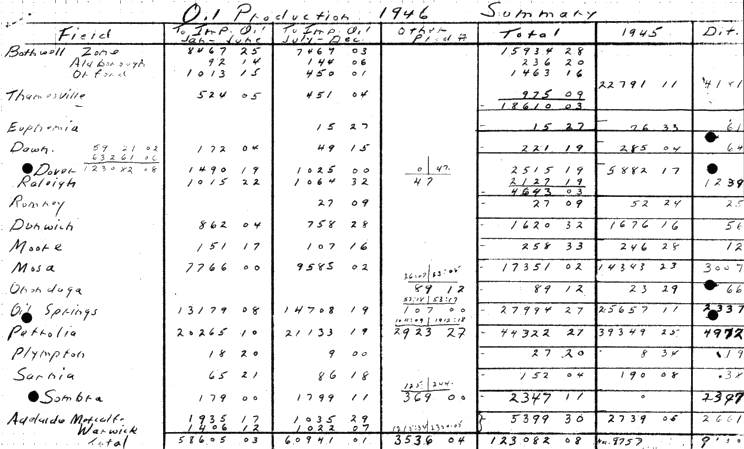 Oil Production 1946 Summary
Field To Imp. Oil Jan - June To Imp. Oil July - Dec. Other Prod # Total 1945 Dif.
Bothwell Zone 8467 25 7467 03 15934 28
Aldborough 92 14 144 06 236 20
Orford 1013 15 450 01 1463 16
22791 11
Thamesville 524 05 451 04 975 09
18610 03
Euphemia 15 27 15 27 26 33 61
Dawn 59 21 02 172 04 49 15 221 19 285 04 64
63261 06
Dover 123082 08 1490 19 1025 00 0 47 2515 19 5882 17
Raleigh 1015 22 1064 32 47 2127 19 1239
4643 03
Romney 27 09 27 09 52 24 25
Dunwich 862 04 758 28 1620 32 1676 16 56
Moore 151 17 107 16 258 33 246 28 12
Mosa 7766 00 9585 02 17351 02 14343 23 3007
Onondaga 89 12 89 12 23 29 66
Oil Springs 13179 08 14708 19 107 00 27994 27 25657 11 2337
Petrolia 20265 10 21133 19 2923 27 44322 27 39349 25 4972
Plympton 18 20 9 00 27 20 8 34 19
Sarnia 65 21 86 18 152 04 190 08 38
125 244
Sombra 179 00 1799 11 369 00 2347 11 0 2387
Adelaide Metcalfe 1935 17 1035 29 5399 30 2739 05 2661
Warwick 1406 12 1022 07
Total 58605 03 60941 01 3536 04 123082 08 9757